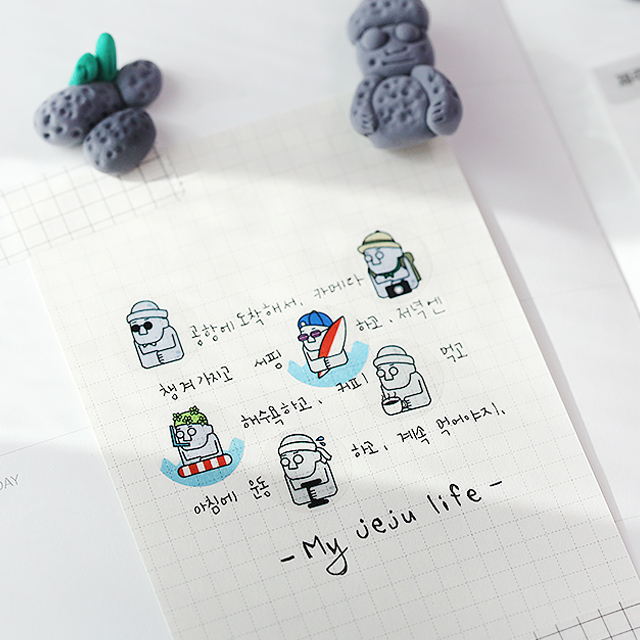 공항에 도착해서, 카메라
챙겨가지고 서핑 하고, 저녁엔
해수욕하고, 커피 먹고
아침에 운동 하고, 계속 먹어야지.
- My jeju life -